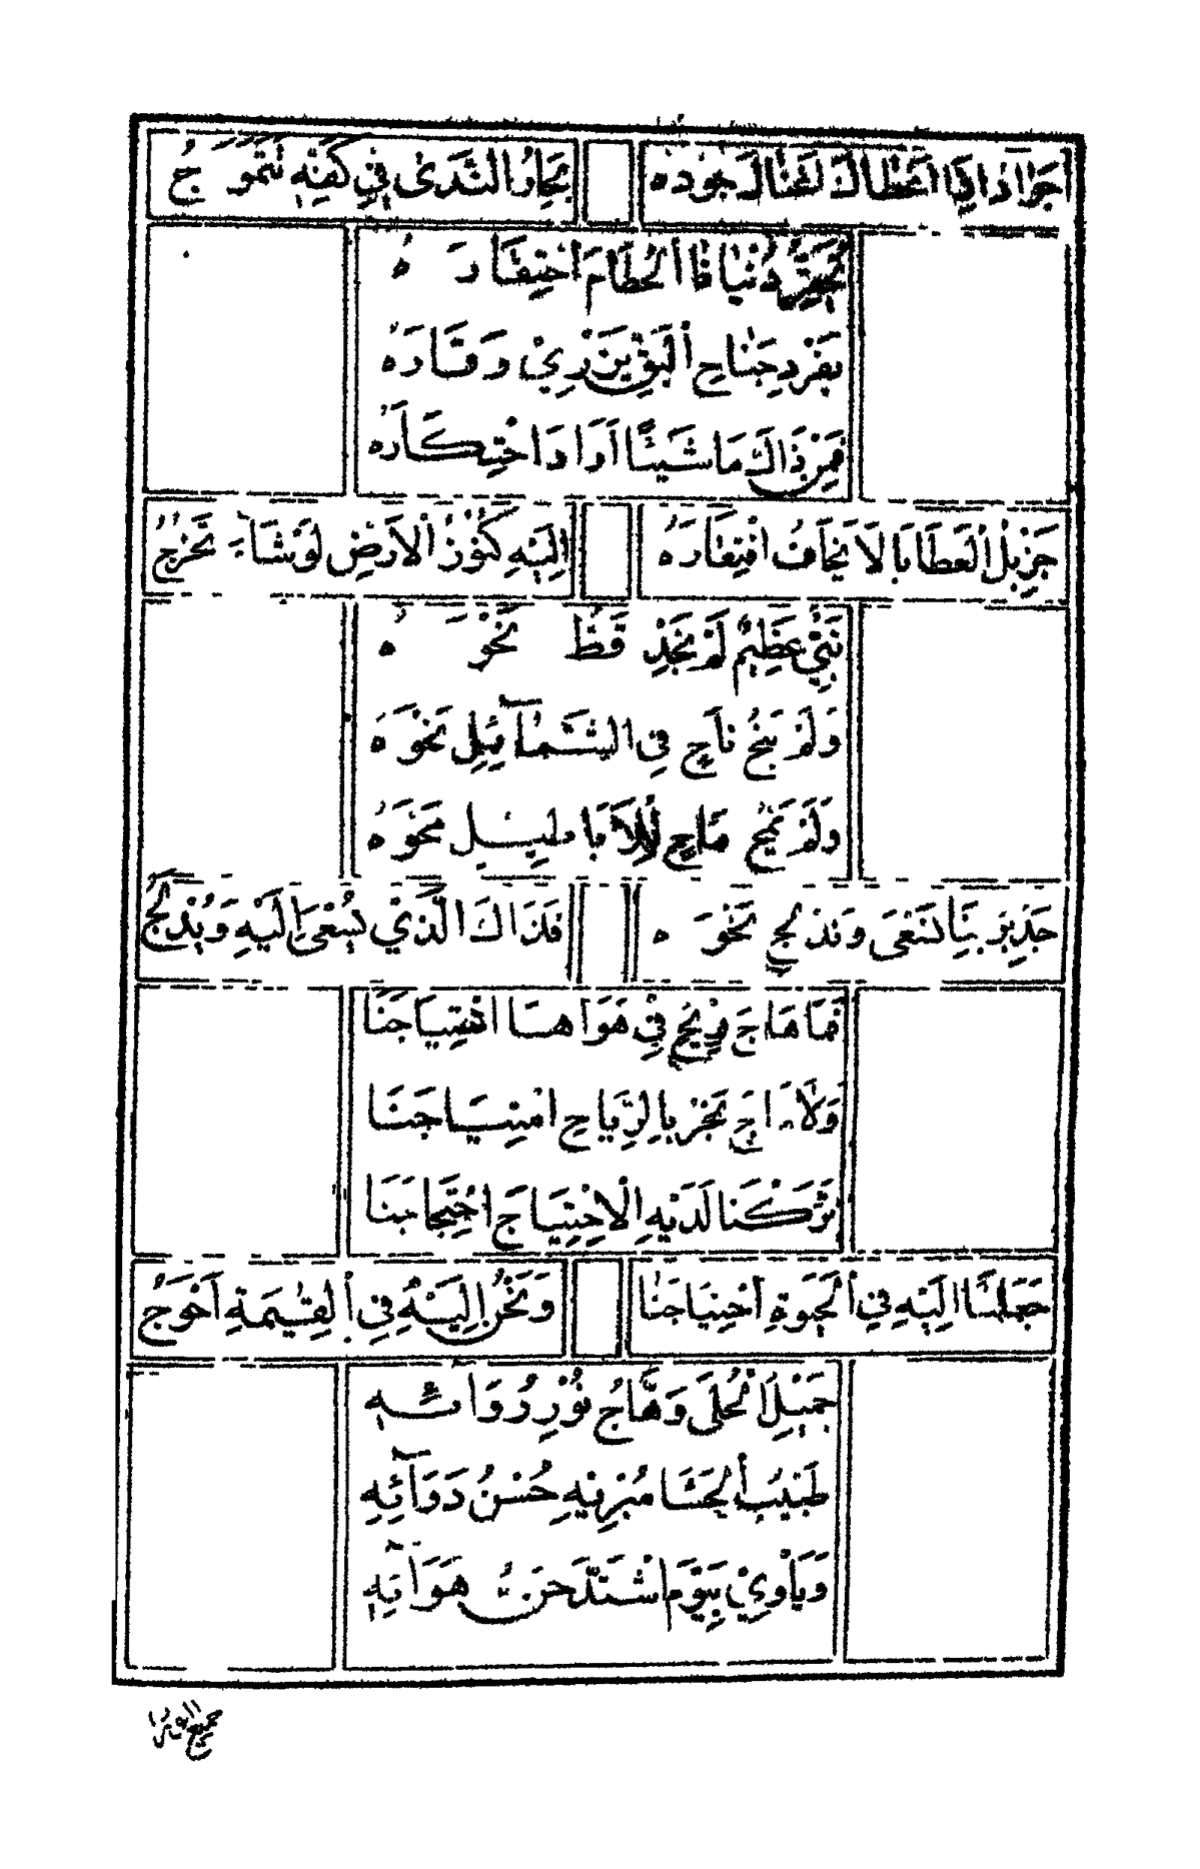 جَوَادٌ اِذَا اَعْطَاكَ اَغْنَاكَ جُوْدُهُ بِحَارُ النَّدَى فِي كَفِّهِ تَتَمَوَّجُ
دُنْيَا فَا الْحُطَامَ احْتِقَارَهُ
بِفَرْدِ جَنَاحِ الْبَقِّ يَزْرِيْ وَقَارَهُ
فَمِنْ ذَاكَ مَا شَيْئًا اَرَادَ احْتِكَارَهُ
جَزِيْلُ الْعَطَايَا لَا يَخَافُ افْتِقَارَهُ اِلَيْهِ كُنُوْزُ الْاَرْضِ لَوْ شَاءَ تَخْرُجُ
نَبِيٌّ عَظِيْمٌ لَمْ نَجِدْ قَطُّ نَحْوَهُ
وَلَمْ يَنْحُ نَاحٍ فِي الشَّمَآئِلِ نَحْوَهُ
وَلَمْ مَاحٍ لِلْاَبَاطِيْلِ مَحْوَهُ
جَدِيْرٌ بِنَا نَسْعَى وَنُدْلِجُ نَحْوَهُ فَذَاكَ الَّذِيْ يُسْعَى اِلَيْهِ وَيُدْلَجُ
فَمَا هَاجَ فِي هَوَاهَا اهْتِيَاجَنَا
وَلَا بِالرِّيَاحِ
تَرَكْنَا لَدَيْهِ الْاِحْتِيَاجَ احْتِجَاجَنَا
جَعَلْنَا اِلَيْهِ فِي الْحَيٰوةِ احْتِيَاجَنَا وَنَحْنُ اِلَيْهِ فِي الْقِيٰمَةِ اَحْوَجُ
جَمِيْلُ الْحُلَى وَهَّاجُ نُوْرِ رُوَائِهِ
طَبِيْبُ الْحَشَا مُبْرِيْهِ حُسْنُ دَوَآئِهِ
وَيَاْوِيْ بِيَوْمٍ اشْتَدَّ حَرُّ هَوَآئِهِ
جميع